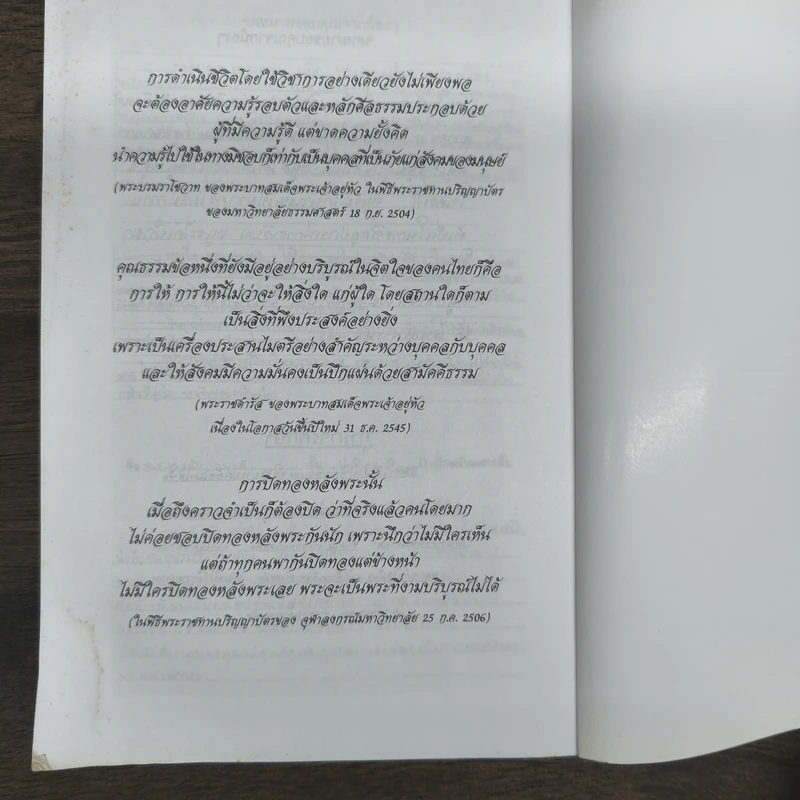 การดำเนินชีวิตโดยใช้วิชาการอย่างเดียวยังไม่เพียงพอ
จะต้องอาศัยความรู้รอบตัวและหลักศีลธรรมประกอบด้วย
ผู้ที่มีความรู้ดี แต่ขาดความยั้งคิด
นำความรู้ไปใช้ในทางมิชอบก็เท่ากับเป็นบุคคลที่เป็นภัยแก่สังคมของมนุษย์
(พระบรมราโชวาท ของพระบาทสมเด็จพระเจ้าอยู่หัว ในพิธีพระราชทานปริญญาบัตร
ของมหาวิทยาลัยธรรมศาสตร์ 18 ก.ย. 2504)
คุณธรรมข้อหนึ่งที่ยังมีอยู่อย่างบริบูรณ์ในจิตใจของคนไทยก็คือ
การให้ การให้นี้ไม่ว่าจะให้สิ่งใด แก่ผู้ใด โดยสถานใดก็ตาม
เป็นสิ่งที่พึงประสงค์อย่างยิ่ง
เพราะเป็นเครื่องประสานไมตรีอย่างสำคัญระหว่างบุคคลกับบุคคล
และให้สังคมมีความมั่นคงเป็นปึกแผ่นด้วยสามัคคีธรรม
(พระราชดำรัส ของพระบาทสมเด็จพระเจ้าอยู่หัว
เนื่องในโอกาสวันขึ้นปีใหม่ 31 ธ.ค. 2545)
การปิดทองหลังพระนั้น
เมื่อถึงคราวจำเป็นก็ต้องปิด ว่าที่จริงแล้วคนโดยมาก
ไม่ค่อยชอบปิดทองหลังพระกันนัก เพราะนึกว่าไม่มีใครเห็น
แต่ถ้าทุกคนพากันปิดทองแต่ข้างหน้า
ไม่มีใครปิดทองหลังพระเลย พระจะเป็นพระที่งามบริบูรณ์ไม่ได้
(ในพิธีพระราชทานปริญญาบัตรของ จุฬาลงกรณ์มหาวิทยาลัย 25 ก.ค. 2506)